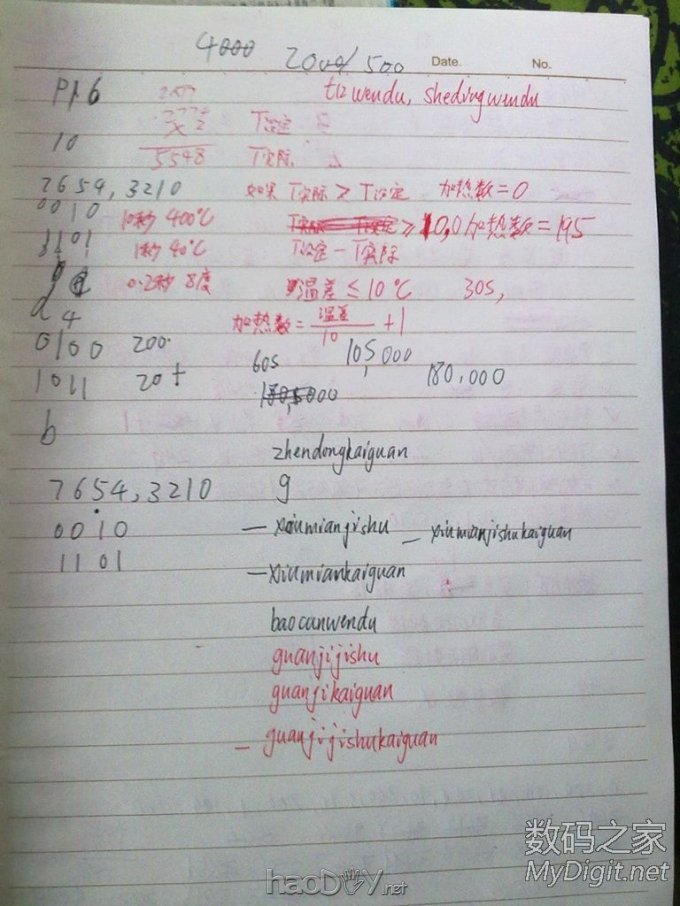 4000 2000/500 Date. No.
P1.6 tlzwendu, shedingwendu
x 2 T设定
10 5548 T实际
7654,3210 如果 T实际 > T设定 加热数=0
0010 10秒 400℃ T实际 T设定 ≥ 10,0 加热数=195
1101 1秒 40℃ T设定-T实际
0.2秒 8度 温差≤10℃ 30S,
d 4 加热数=温差/10+1
0100 200. 60s 105,000
1011 20+ 180,000
b
zhendongkaiguan
7654,3210 9
0010 —xiumianjishu —xiumianjishukaiguan
1101 —xiumiankaiguan
baocunwendu
guanjijishu
guanjikaiguan
—guanjijishukaiguan
数码之家
MyDigit.net
haoDIY.net